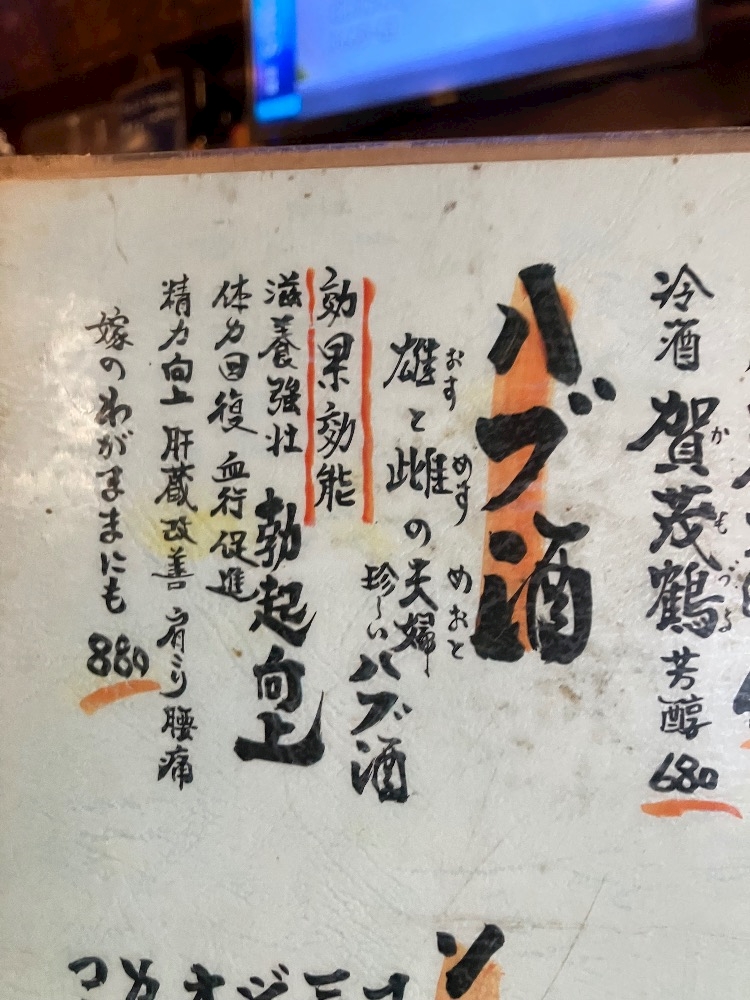 冷酒 賀茂鶴 芳醇 680
かもづる
ハブ酒
雄と雌の夫婦
おす めす めおと
珍しいハブ酒
効果効能
滋養強壮 勃起向上
体力回復 血行促進
精力向上 肝蔵改善 肩こり 腰痛
嫁のわがままにも 880